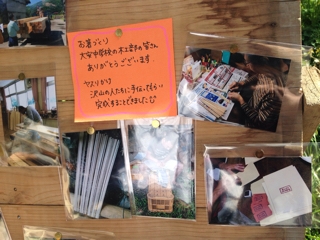 お箸づくり
大安中学校の木工部の皆さん
ありがとうございます
ヤスリがけ
沢山の人たちに手伝ってもらい
完成することができました